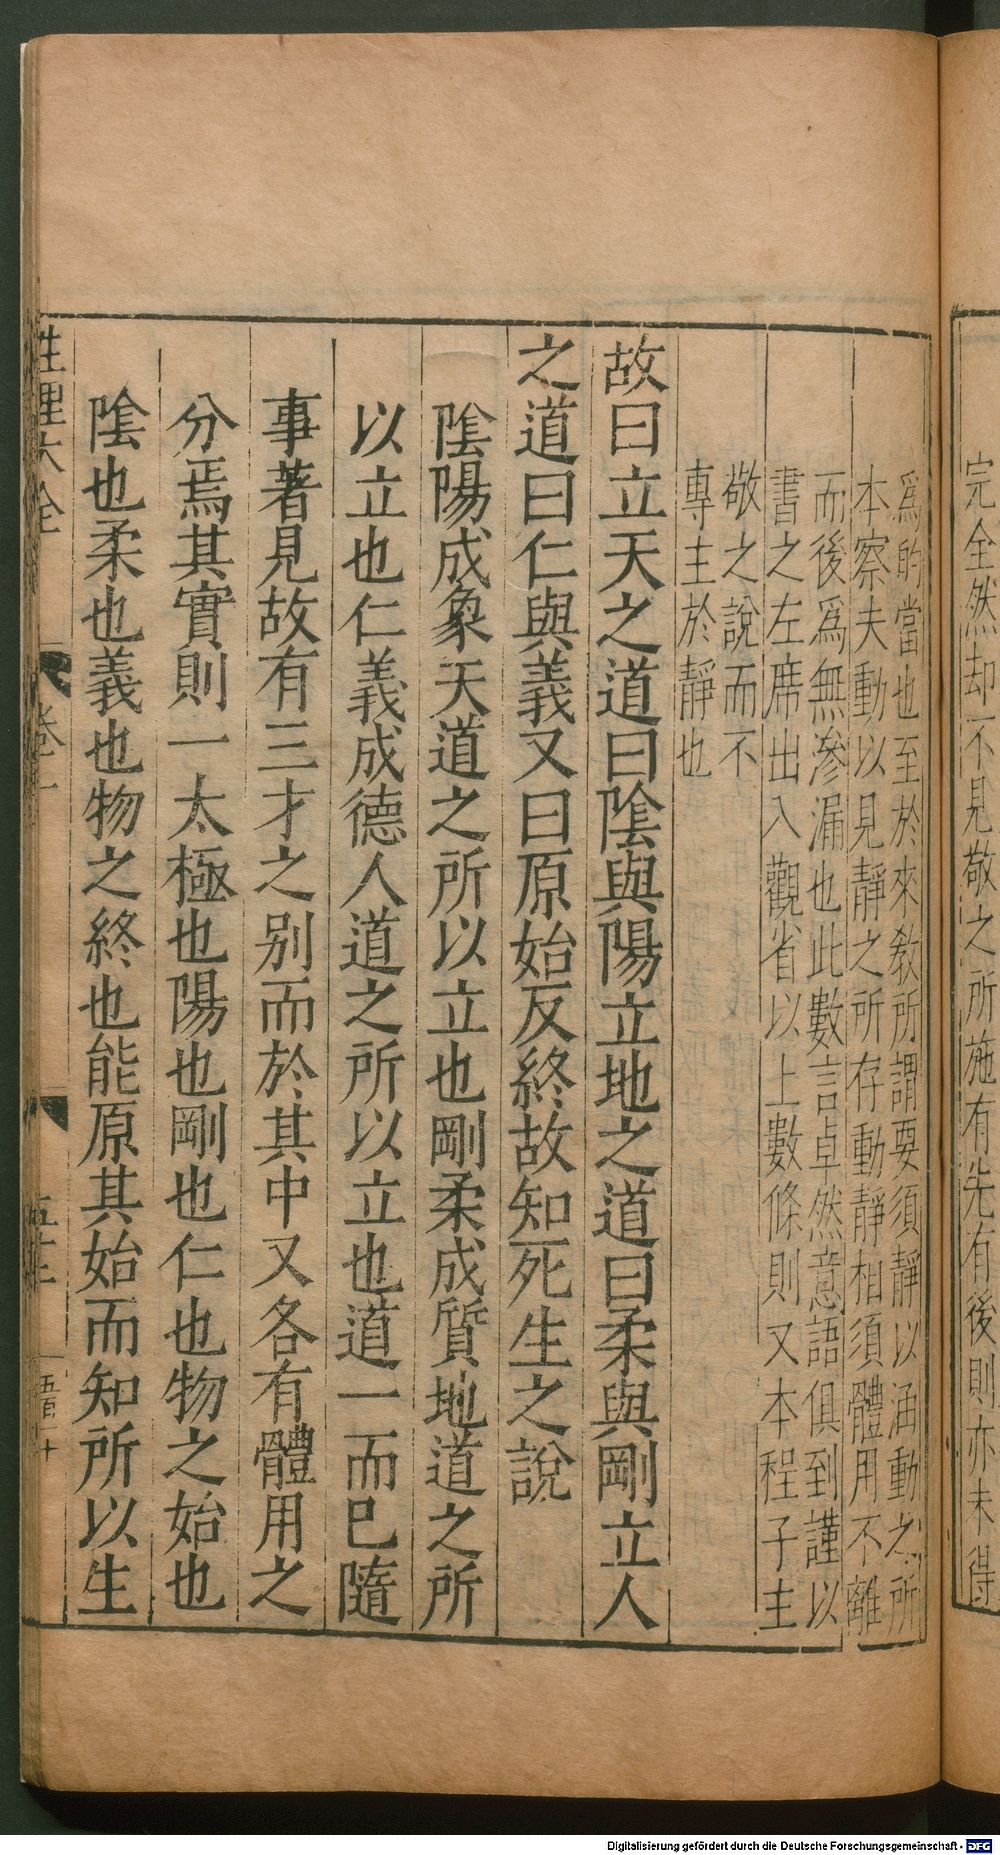 完全然却不見敬之所施有先有後則亦未得
為的當也至於來敎所謂要須靜以涵動之所
本察夫動以見靜之所存動靜相須體用不離
而後為無滲漏也此數言卓然意語俱到謹以
書之左席出入觀省以上數條則又本程子主
敬之說而不
專主於靜也
故曰立天之道曰陰與陽立地之道曰柔與剛立人
之道曰仁與義又曰原始反終故知死生之說
陰陽成象天道之所以立也剛柔成質地道之所
以立也仁義成德人道之所以立也道一而已隨
事著見故有三才之别而於其中又各有體用之
分焉其實則一太極也陽也剛也仁也物之始也
陰也柔也義也物之終也能原其始而知所以生
性理大全 卷一
Digitalisierung gefördert durch die Deutsche Forschungsgemeinschaft - DFG